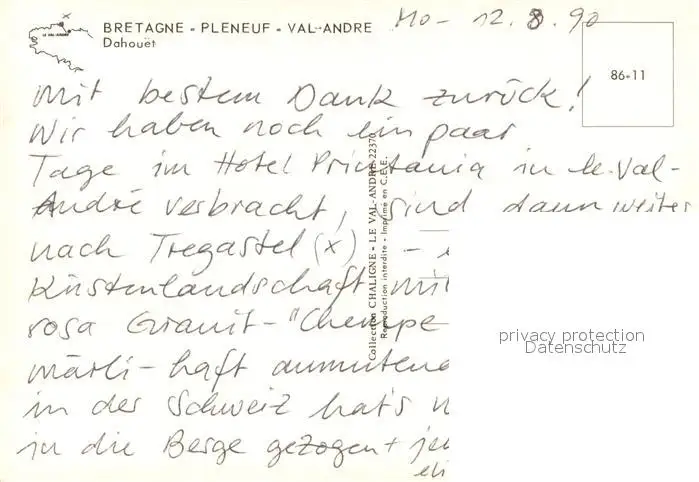 BRETAGNE - PLENEUF - VAL-ANDRE
Dahouët
LE VAL-ANDRÉ
Mo- 12.8.90
86-11
Mit bestem Dank zurück!
Wir haben noch ein paar
Tage im Hotel Printania in le Val-
André verbracht, sind dann weiter
nach Tregastel (x) -
Küstenlandschaft mit
rosa Granit-"
märli-haft anmutend
in der Schweiz hat's
in die Berge gezogen +
Collection CHALIGNE - LE VAL-ANDRÉ 22370
Reproduction interdite - Imprimé en C.E.E.
privacy protection
Datenschutz